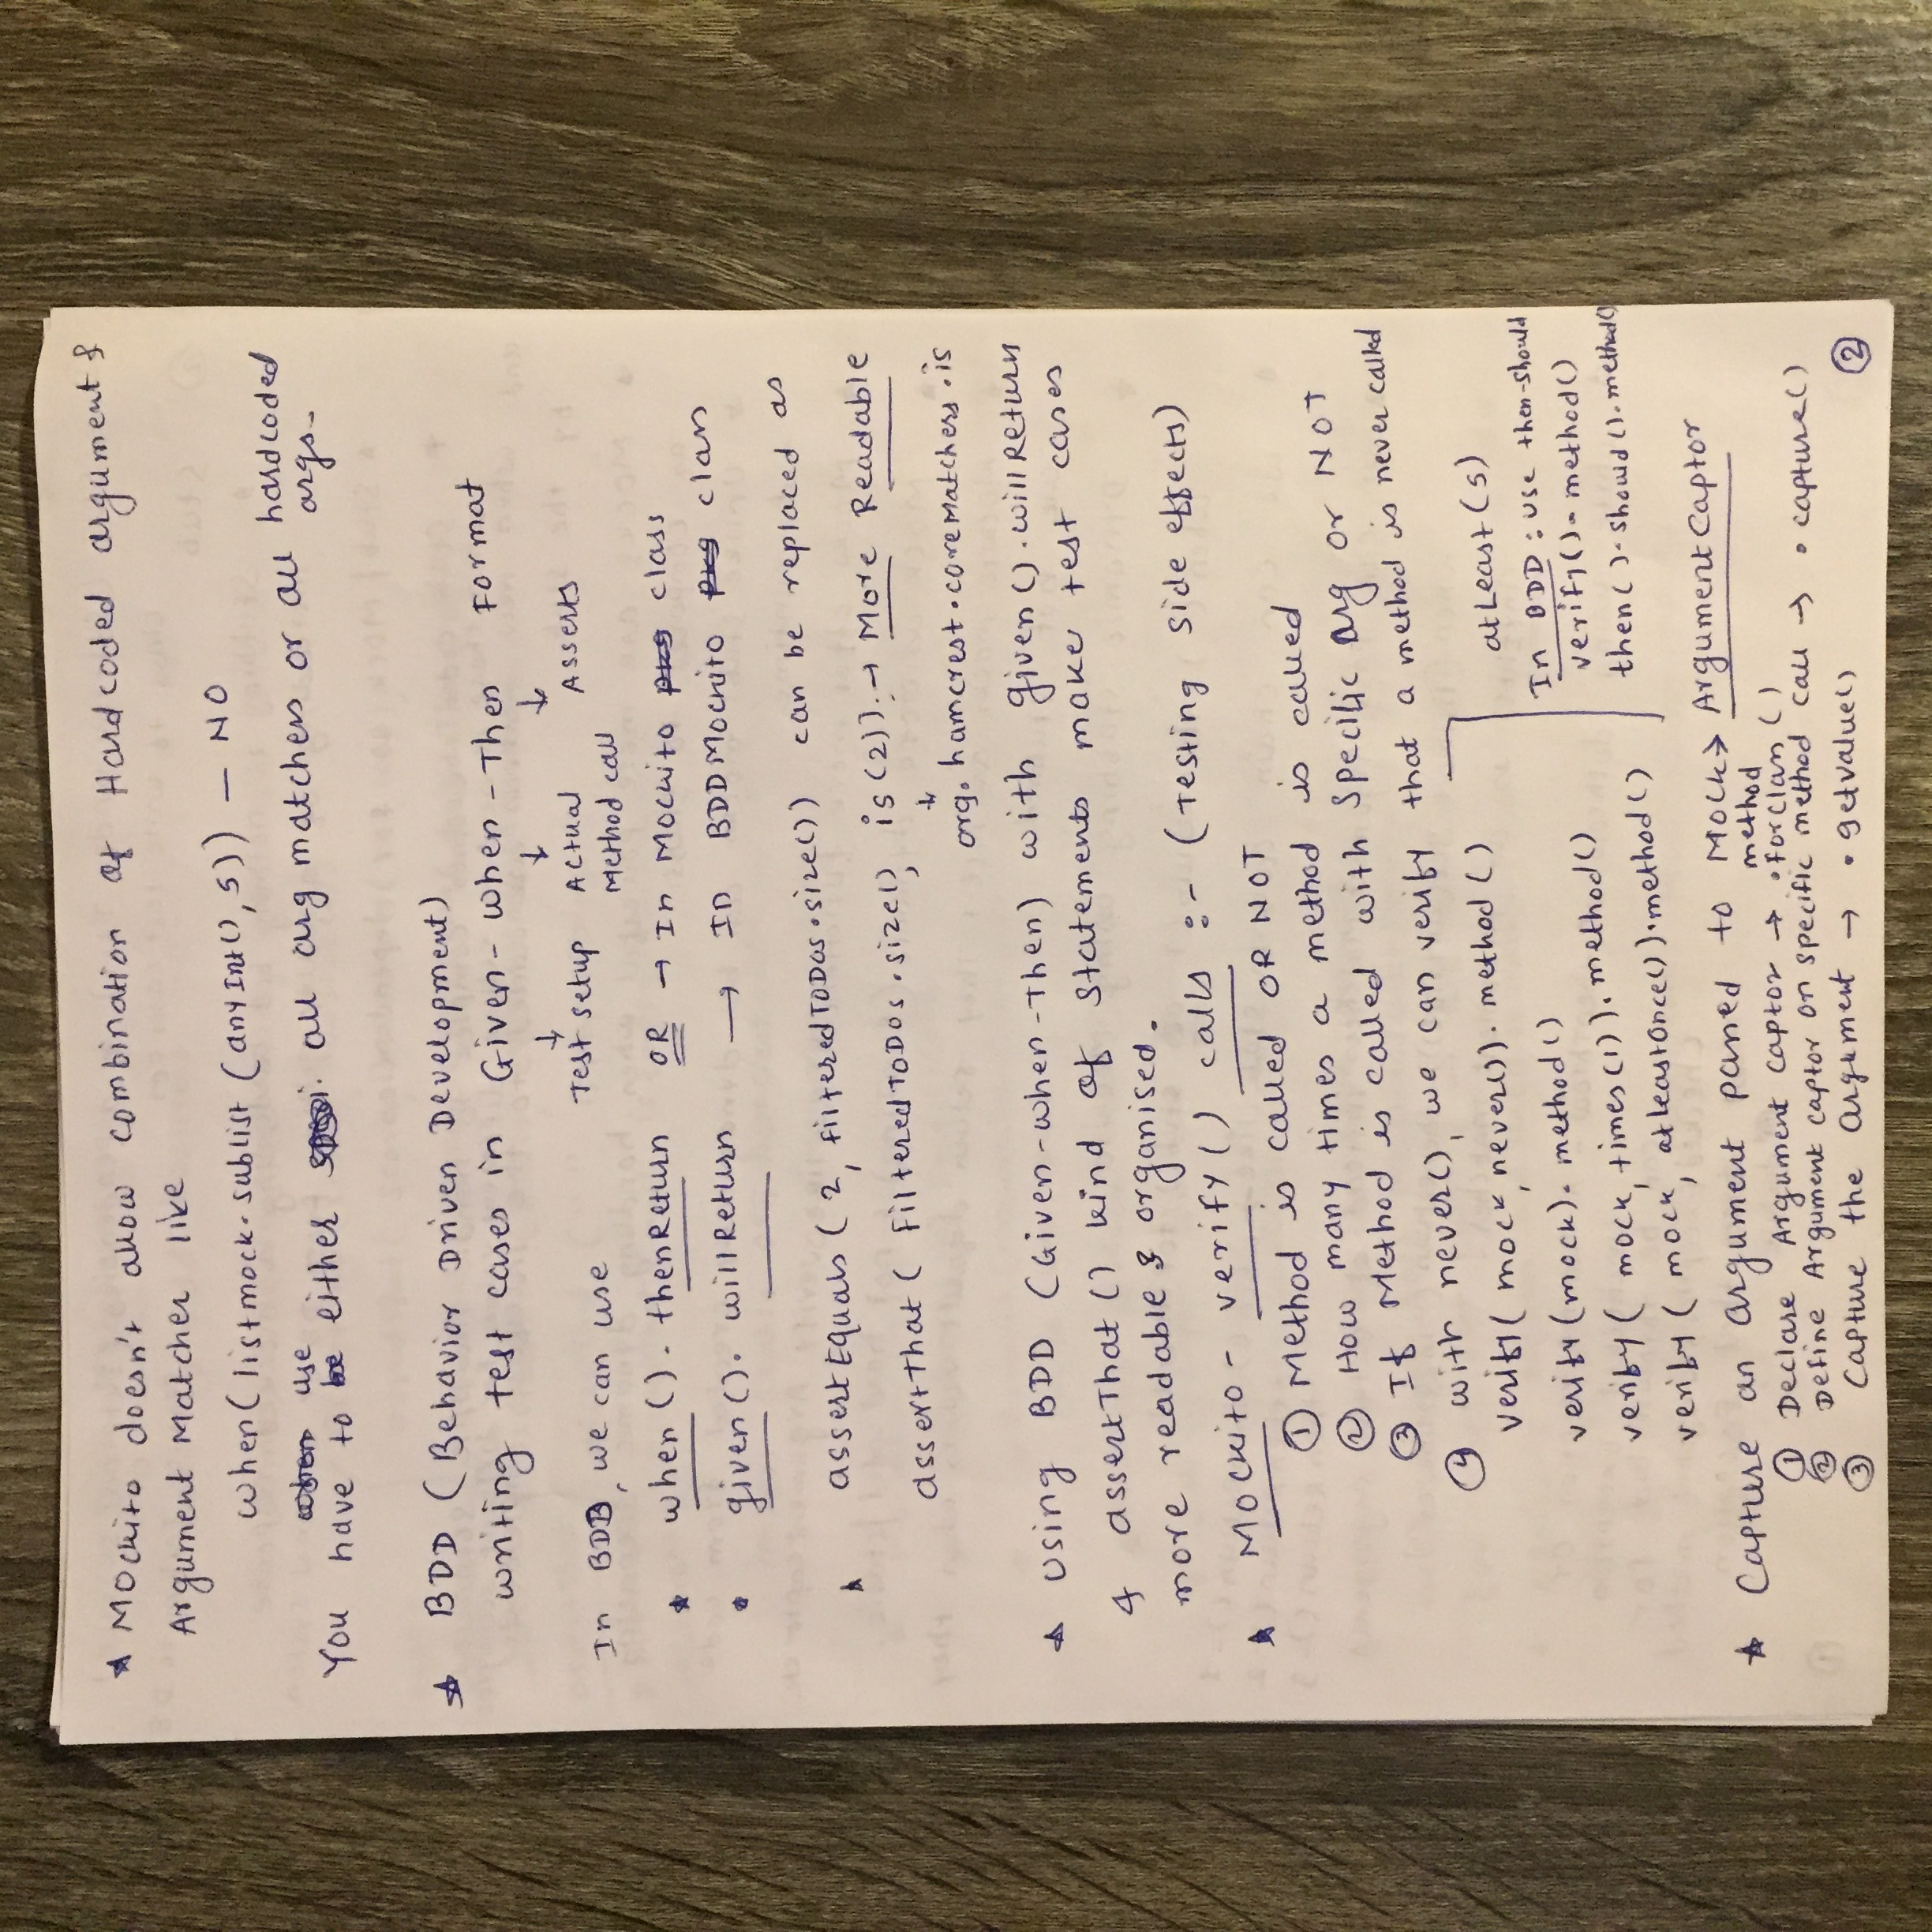 ★ Mockito doesn't allow combination of Hardcoded argument &
Argument Matcher like
when(listmock.sublist(anyInt(), 5)) — NO
when use
You have to be either all arg matchers or all hardcoded args.
★ BDD (Behavior Driven Development)
writing test cases in Given - When - Then Format
↓ ↓ ↓
Test setup Actual Method call Asserts
In BDD, we can use
★ when(). thenReturn OR → In Mockito pkg class
• given(). willReturn → In BDDMockito pkg class
★ assertEquals(2, filteredToDos.size()) can be replaced as
assertThat(filteredToDos.size(), is(2)); → More Readable
↓
org.hamcrest.coreMatchers.is
★ Using BDD (Given-when-Then) with given().willReturn
& assertThat() kind of statements make test cases
more readable & organised.
★ Mockito - verify() calls :- (Testing side effects)
① Method is called OR NOT
② How many times a method is called
③ If Method is called with specific Arg or NOT
④ with never(), we can verify that a method is never called
verify(mock, never()). method()
verify(mock). method()
verify(mock, times(1)). method()
verify(mock, atleastOnce()).method()
atLeast(5)
In BDD : use then-should
verify(). method()
then().should().method()
★ Capture an argument passed to Mock method → ArgumentCaptor
① Declare Argument captor → .forClass()
② Define Argument captor on specific method call → .capture()
③ Capture the Argument → .getvalue()
②